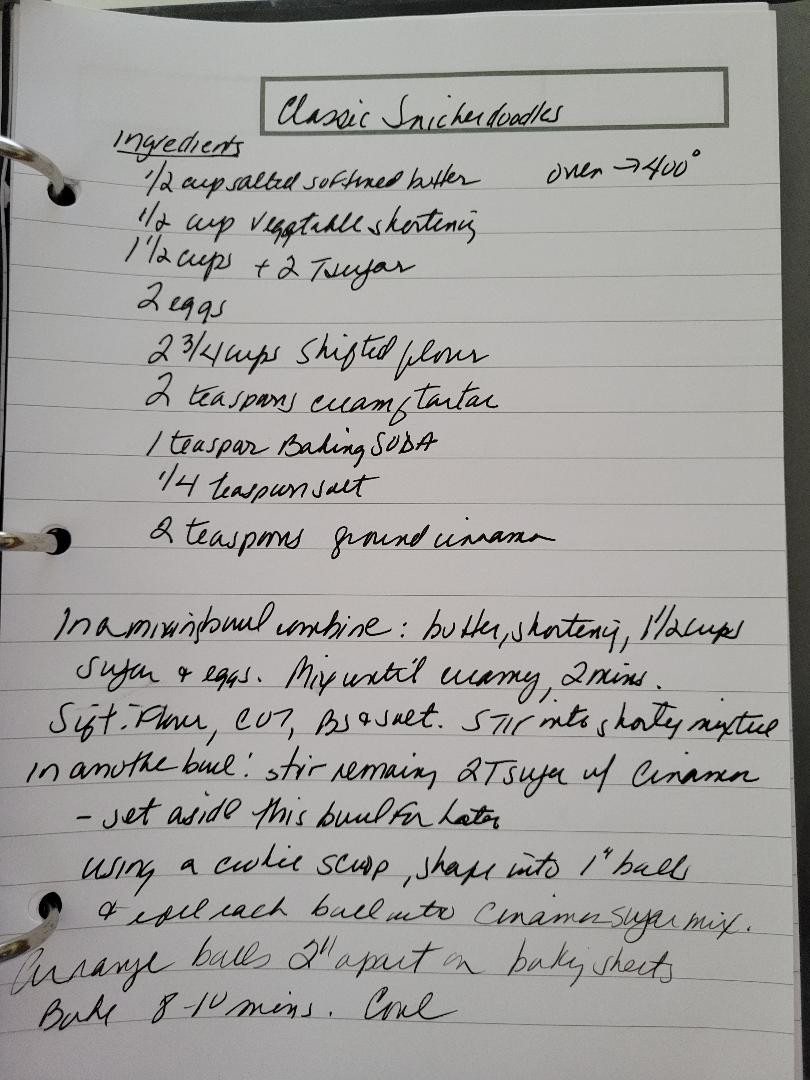 Classic Snickerdoodles
Ingredients
1/2 cup salted softned butter
oven → 400°
1/2 cup vegetable shortening
1 1/2 cups + 2 T sugar
2 eggs
2 3/4 cups shifted flour
2 teaspoons cream of tartar
1 teaspoon Baking SODA
1/4 teaspoon salt
2 teaspoons ground cinnamon
In a mixing bowl combine: butter, shortening, 1 1/2 cups
sugar & eggs. Mix until creamy, 2 mins.
Sift: Flour, COT, BS & salt. STIR into shorting mixture
In another bowl: stir remaining 2T sugar w/ Cinamon
- set aside this bowl for later
using a cookie scoop, shape into 1" balls
& roll each ball into Cinamon sugar mix.
Arrange balls 2" apart on baking sheets
Bake 8-10 mins. Cool